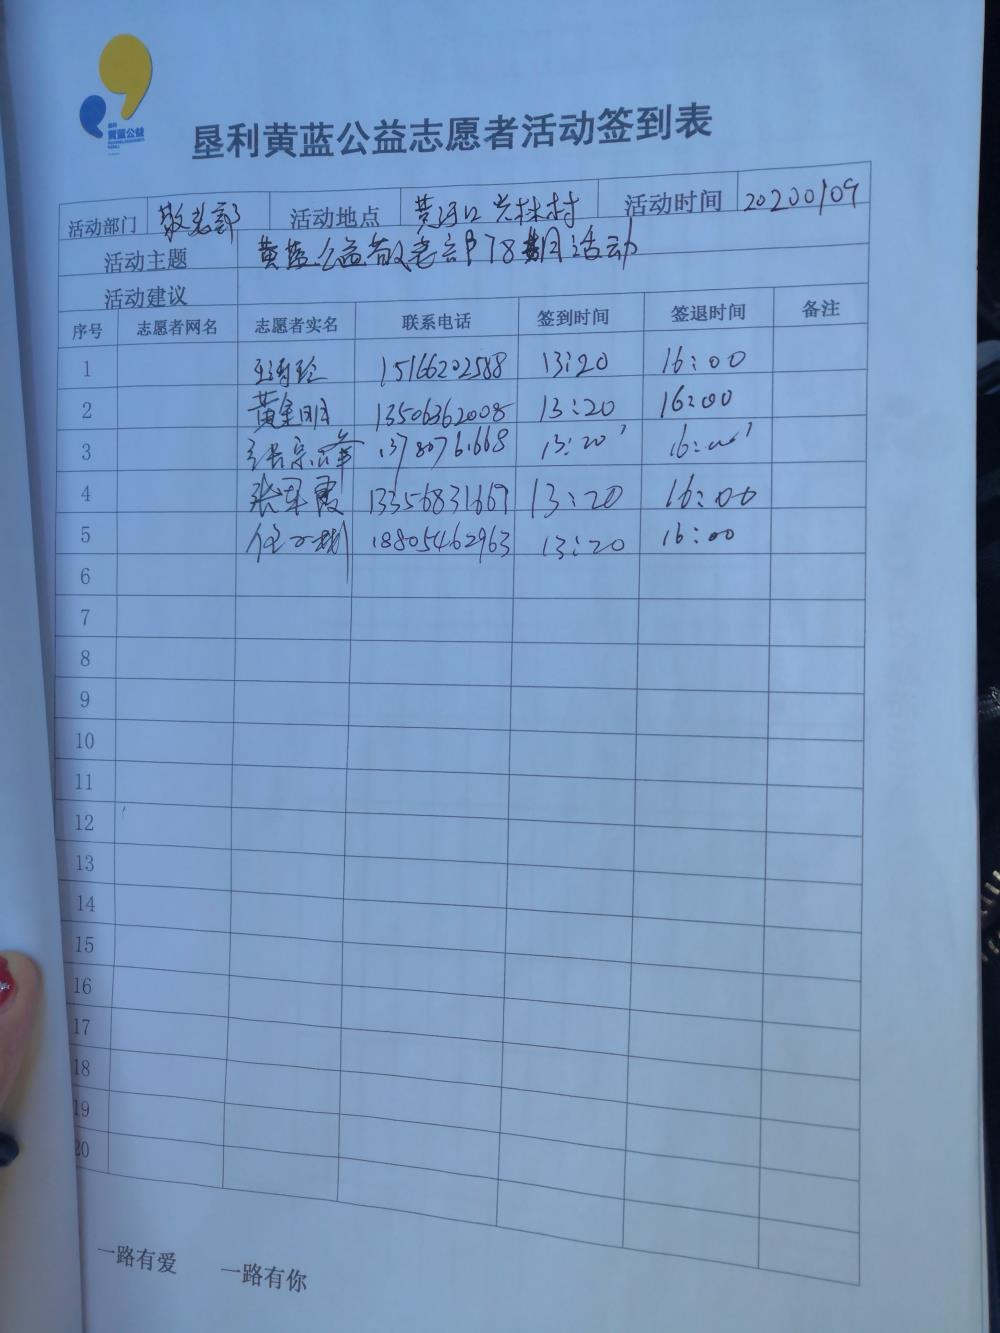 黄蓝公益
垦利黄蓝公益志愿者活动签到表
活动部门 敬老部 活动地点 黄河口 兴林村 活动时间 20200109
活动主题 黄蓝公益敬老部78期活动
活动建议
序号 志愿者网名 志愿者实名 联系电话 签到时间 签退时间 备注
1 15166202588 13:20 16:00
2 黄金明 13506362008 13:20 16:00
3 张宗峰 13:20' 16:00'
4 张军霞 13356831667 13:20 16:00
5 18805462963 13:20 16:00
6
7
8
9
10
11
12
13
14
15
16
17
18
19
20
一路有爱 一路有你